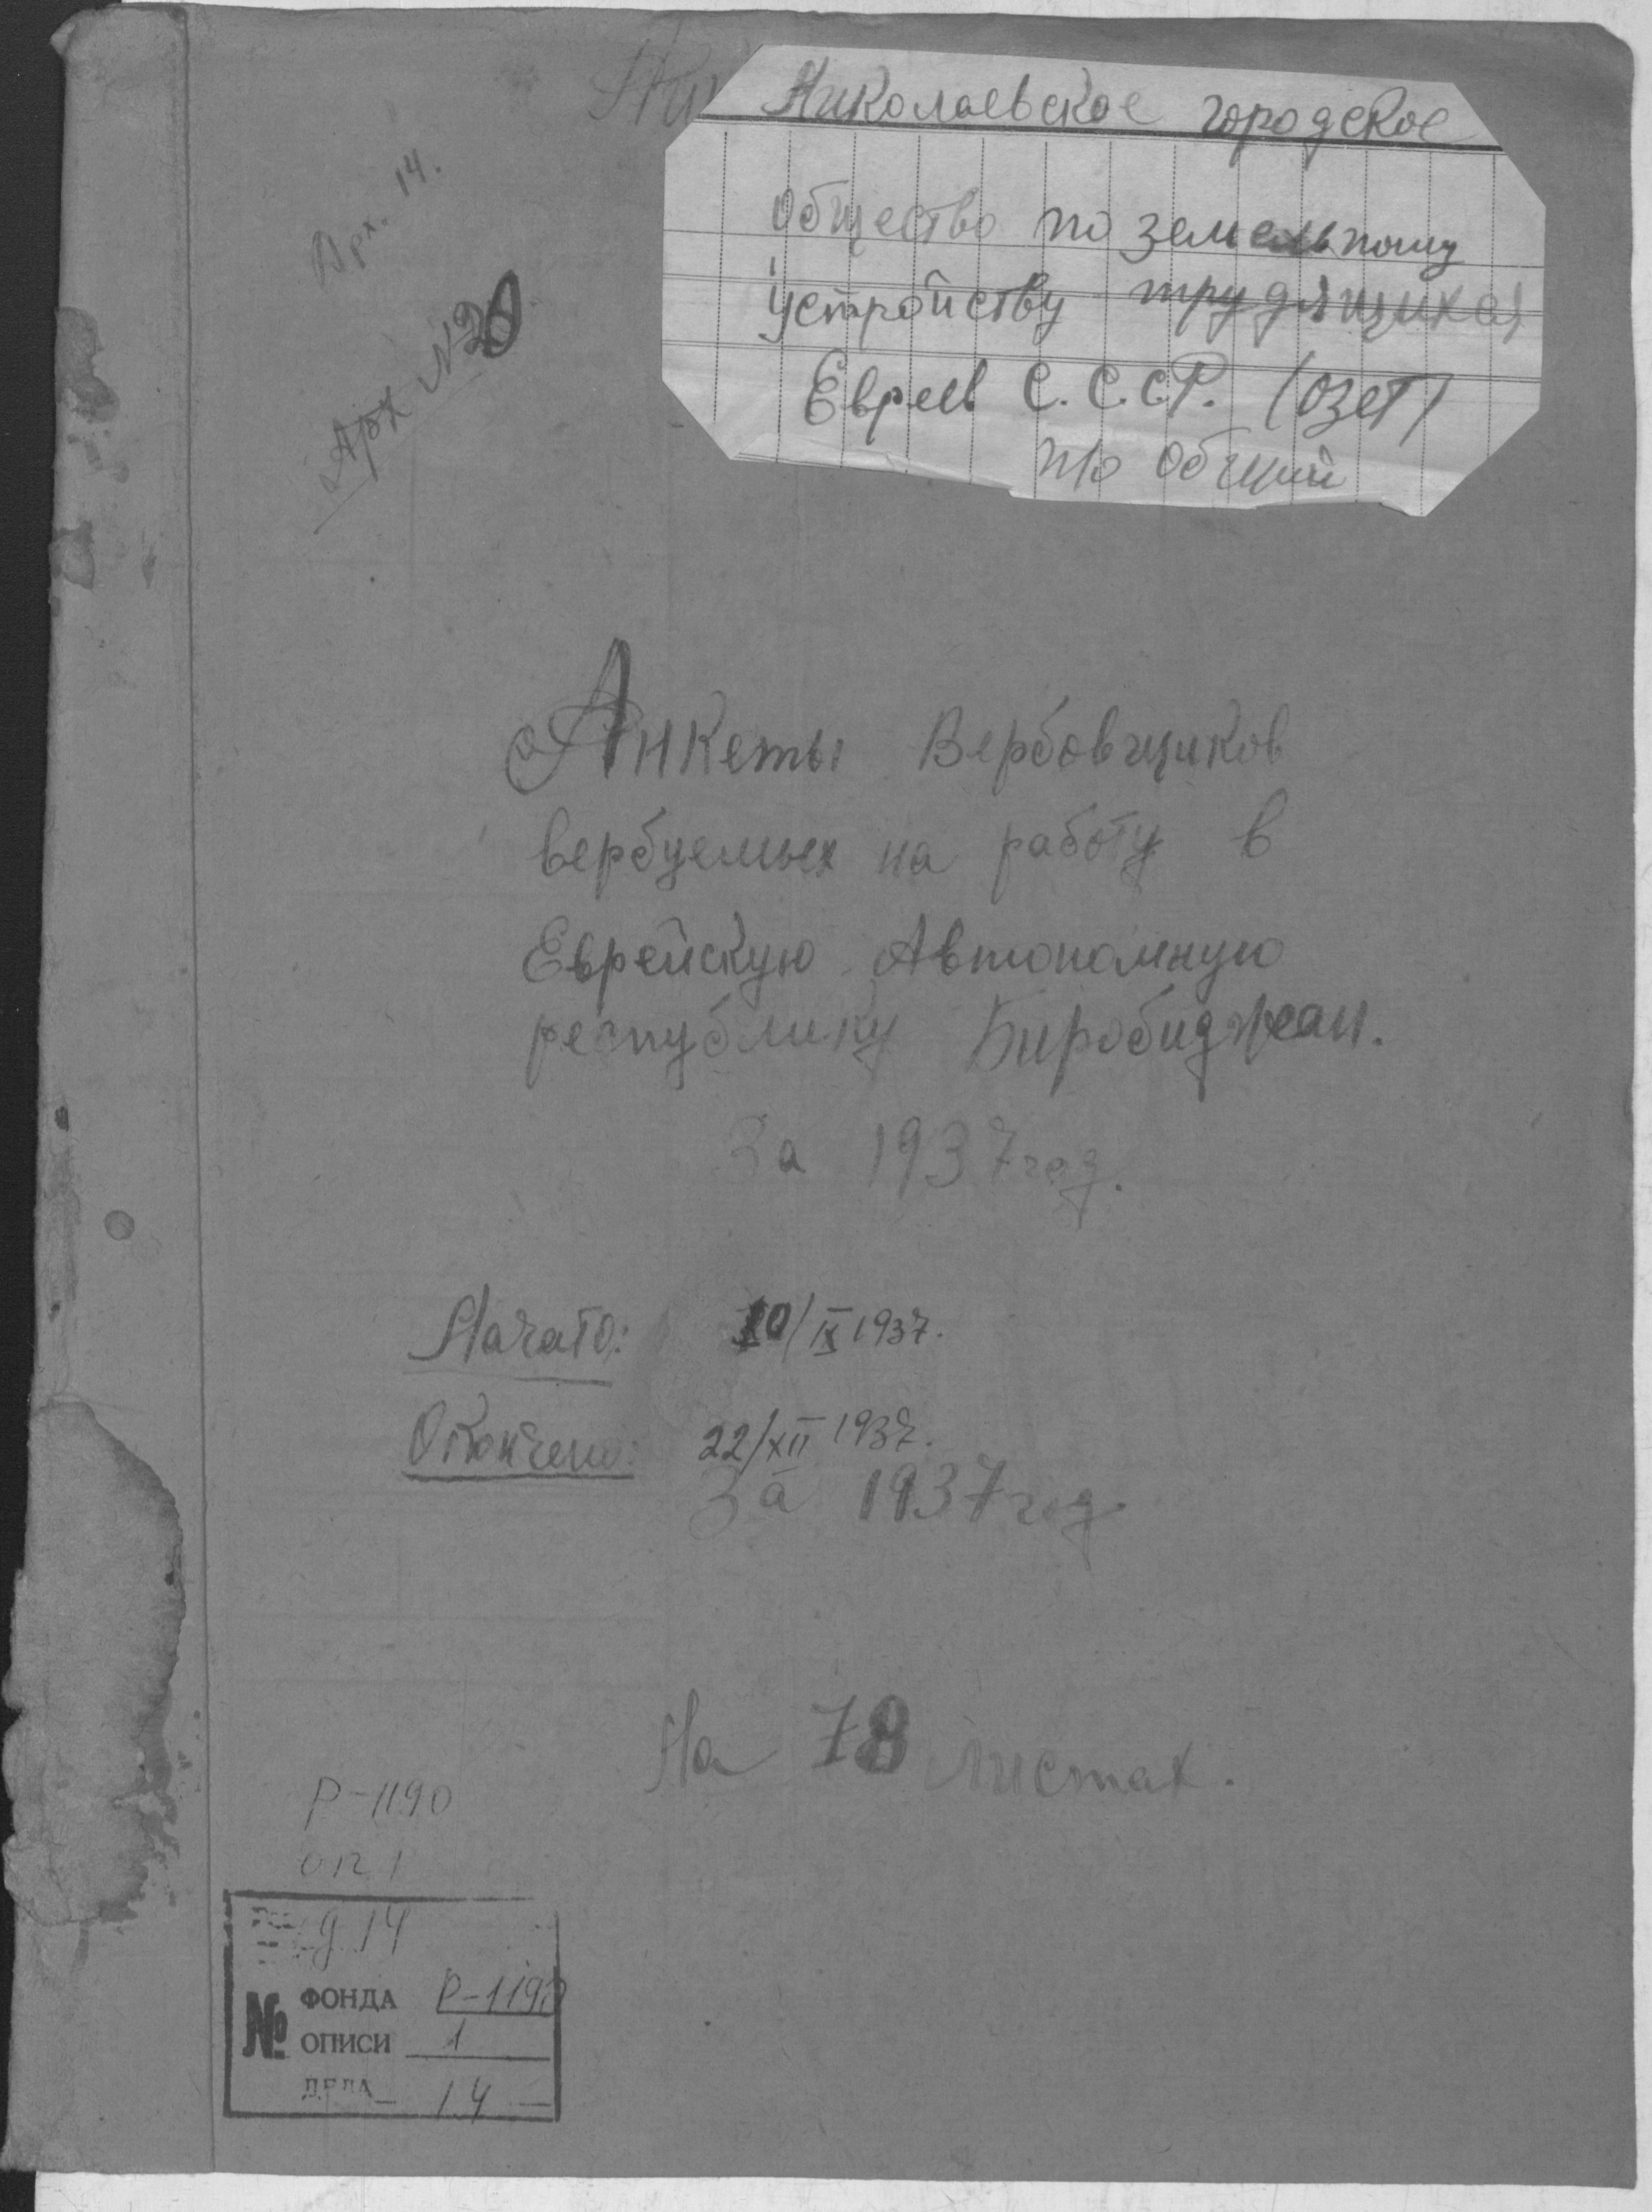 Николаевское городское
Общество по земельному
устройству трудящихся
Евреев С.С.С.Р. (ОЗЕТ)
п/о Общий
Арх. 14.
Арх №20
Анкеты Вербовщиков
вербуемых на работу в
Еврейскую Автономную
республику Биробиджан.
За 1937 год.
Начато: 10/IX 1937.
Окончено: 22/XII 1937.
За 1937 год
На 78 листах.
Р-1190
оп 1
д. 14
№
ФОНДА Р-1190
ОПИСИ 1
ДЕЛА 14